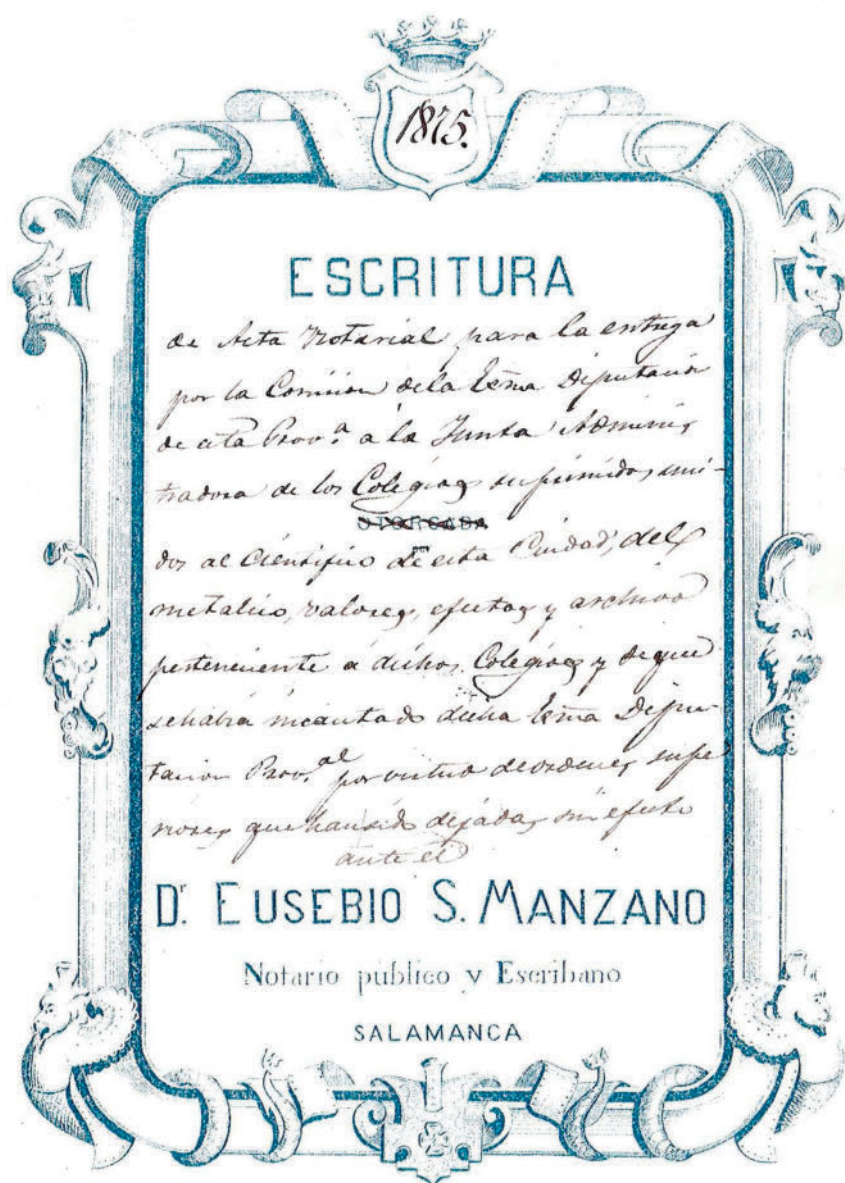 1875.
ESCRITURA
de Acta Notarial para la entrega
por la Comision dela Exma Diputacion
de esta Prov.ª a la Junta Adminis
tradora de los Colegios suprimidos, uni-
OTORGADA
dos al Cientifico de esta Ciudad, del
POR
metalico, valores, efectos y archivo
perteneciente á dichos Colegios y deque
sehabia incautado dicha Exma Dipu-
tacion Prov.al por virtud de ordenes supe
riores que hansido dejadas sin efecto
ante el
Dr. EUSEBIO S. MANZANO
Notario público y Escribano
SALAMANCA